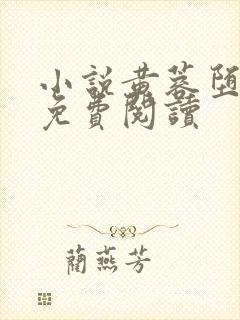 小說黄蓉堕
免費閱讀
蘭燕芳